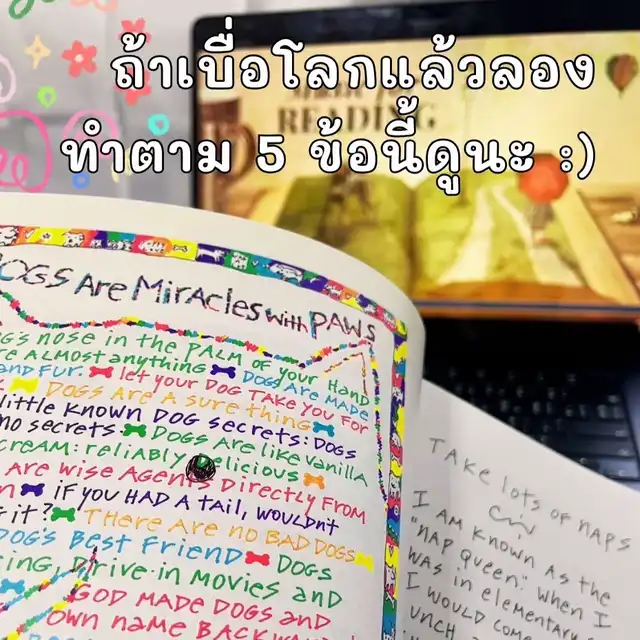 ถ้าเบื่อโลกแล้วลอง
ทำตาม 5 ข้อนี้ดูนะ :)
READING
DOGS Are MiRAcles with PAWS
nose in the PALM of your HAND
ALMOST anything DOGS ARE MADE
AND FUR. let your DOG TAKE you FOR
DOGS ARE A sure thing
little known DOG secrets: DOGS
no secrets DOGS ARE like VANILLA
CREAM: reliably delicious
ARE wise Agents Directly FROM
IF you HAD A tAil, wouldn't
it? THERE ARE no BAD DOGS
DOG'S BEST FRIEND DOGS
Drive-in Movies and
GOD MADE DOGS and
own name BACKWARDS
TAKE lots of NAPS
I AM known AS the
"NAP queen." when I
WAS in elementary
I would come